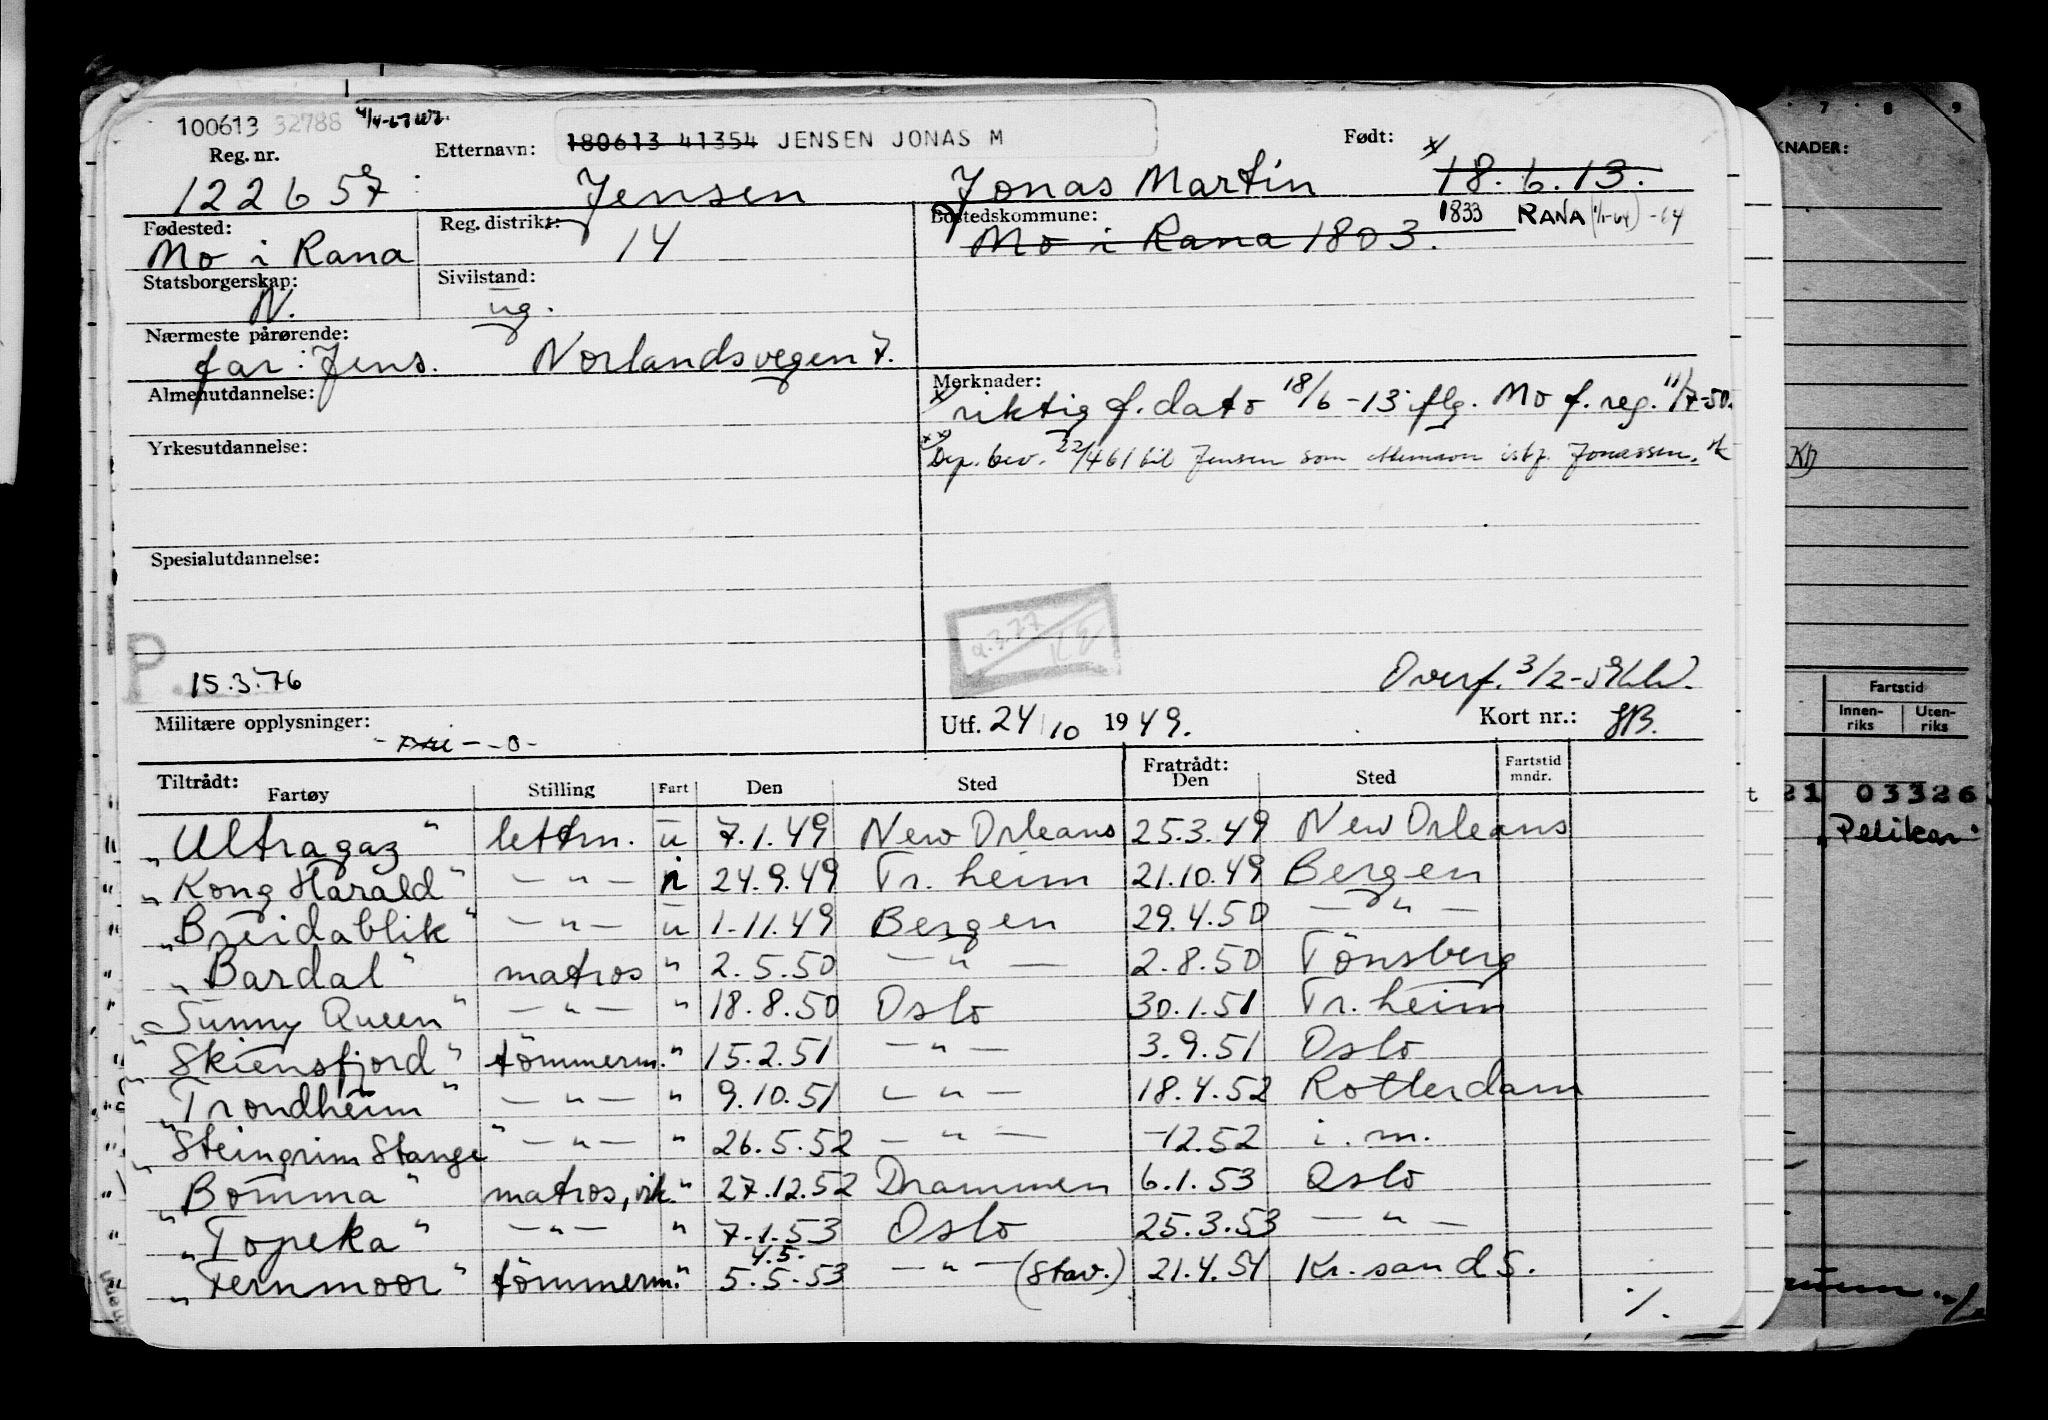 100613 32788
Reg. nr. Etternavn: 180613 41354 JENSEN JONAS M Født:
122657 Jensen Jonas Martin x 18.6.13.
Fødested: Reg. distrikt: Bostedskommune: 1833 RANA (1/1-64) -64
Mo i Rana 14 Mo i Rana 1803.
Statsborgerskap: Sivilstand:
N. ug.
Nærmeste pårørende:
far: Jens. Norlandsvegen 7.
Almenutdannelse: Merknader:
x riktig f.dato 18/6-13 iflg. Mo f.reg. 11/7-50.
Yrkesutdannelse: xx Dep. bev. 22/4 61 til Jensen som etternavn istf. Jonassen.
Spesialutdannelse:
2.3.77
P.
15.3.76 Overf. 3/2-59
Militære opplysninger: Utf. 24/10 1949. Kort nr.: HB.
- 0 -
Tiltrådt: Fratrådt: Fartstid mndr.
Fartøy Stilling Fart Den Sted Den Sted
"Ultragaz" lettm. u 7.1.49 New Orleans 25.3.49 New Orleans
"Kong Harald" — " — i 24.9.49 Tr.heim 21.10.49 Bergen
"Breidablik" — " — u 1.11.49 Bergen 29.4.50 — " —
"Bardal" matros " 2.5.50 — " — 2.8.50 Tönsberg
"Sunny Queen" — " — " 18.8.50 Oslo 30.1.51 Tr.heim
"Skiensfjord" tömmerm. " 15.2.51 — " — 3.9.51 Oslo
"Trondheim" — " — " 9.10.51 — " — 18.4.52 Rotterdam
"Steingrim Stange" — " — " 26.5.52 — " — -12.52 i.m.
"Bomma" matros, vik. " 27.12.52 Drammen 6.1.53 Oslo
"Topeka" — " — " 7.1.53 Oslo 25.3.53 — " —
4.5.
"Fernmoor" tömmerm. " 5.5.53 — " — (Stav.) 21.4.54 Kr.sand S.
./.
7 8 9
KNADER:
Fartstid
Innenriks Utenriks
t 21 03326
"Pelikan"